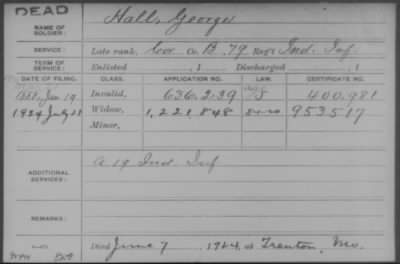 DEAD
NAME OF SOLDIER: Hall, George
SERVICE: Late rank, Cor Co. B, 79 Reg't Ind. Inf
TERM OF SERVICE: Enlisted , 1 Discharged , 1
DATE OF FILING. CLASS. APPLICATION NO. LAW. CERTIFICATE NO.
1888, Jan 19 Invalid, 636,239 400,981
1924 July 21 Widow, 1,221,848 953517
Minor,
ADDITIONAL SERVICES: A 19 Ind. Inf
REMARKS:
Died June 7 1924, at Trenton, Mo.